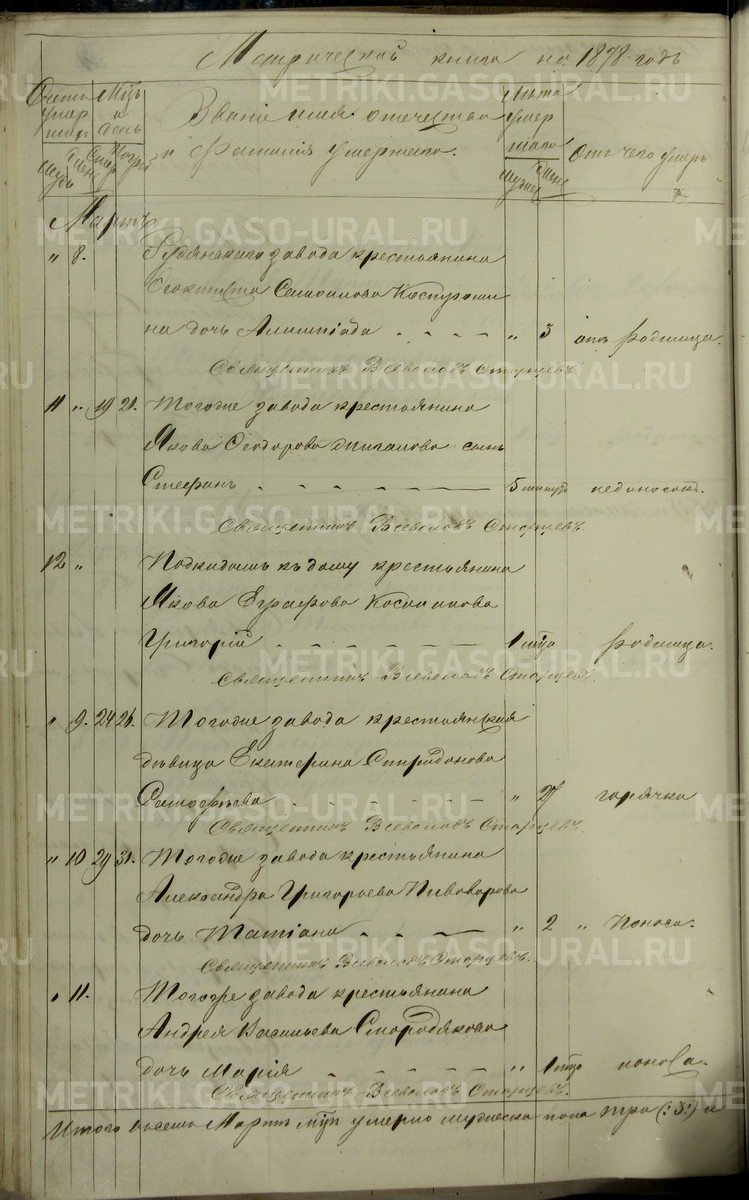 Метрической книги на 1878 годъ
Счетъ умер шихъ
Мѣсъ и день
Званіе имя отечество и фамилія умершаго.
Лѣта умер шаго
Отъ чего умеръ
Муж Жен
Смер Погреб
Муж Жен
Мартъ
" 8. Рудянскаго завода крестьянина
Феоктиста Самойлова
на дочь Алимпіада " 3 отъ родимца.
Священникъ Всеволодъ Старцевъ.
11 " 19 21. Тогоже завода крестьянина
Якова Феодорова сынъ
Стефанъ 5 минутъ недоносокъ.
Священникъ Всеволодъ Старцевъ.
12 " Подкидышъ къ дому крестьянина
Якова Евграфова
Григорій 1 мѣс родимца.
Священникъ Всеволодъ Старцевъ.
" 9. 24 26. Тогоже завода крестьянская
дѣвица Екатерина Спиридонова
" 27 горячка
Священникъ Всеволодъ Старцевъ.
" 10 29 31. Тогоже завода крестьянина
Александра Григорьева Пивоварова
дочь Татіана " 2 " Поноса.
Священникъ Всеволодъ Старцевъ.
" 11. Тогоже завода крестьянина
Андрея Васильева Смородякова
дочь Марія " 1 мѣс поноса.
Священникъ Всеволодъ Старцевъ.
Итого въ семъ Мартѣ мѣсяцѣ умерло мужеска пола три (:3:) и
METRIKI.GASO-URAL.RU